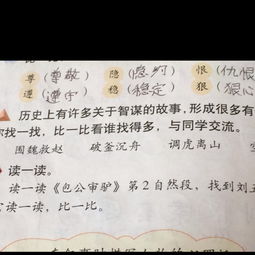 尊（尊敬） 隐（隐约） 恨（仇恨
遵（遵守） 稳（稳定） 狠（狠心
历史上有许多关于智谋的故事，形成很多有
你找一找，比一比看谁找得多，与同学交流。
围魏救赵 破釜沉舟 调虎离山
读一读。
读一读《包公审驴》第2自然段，找到刘五
读一读，比一比。